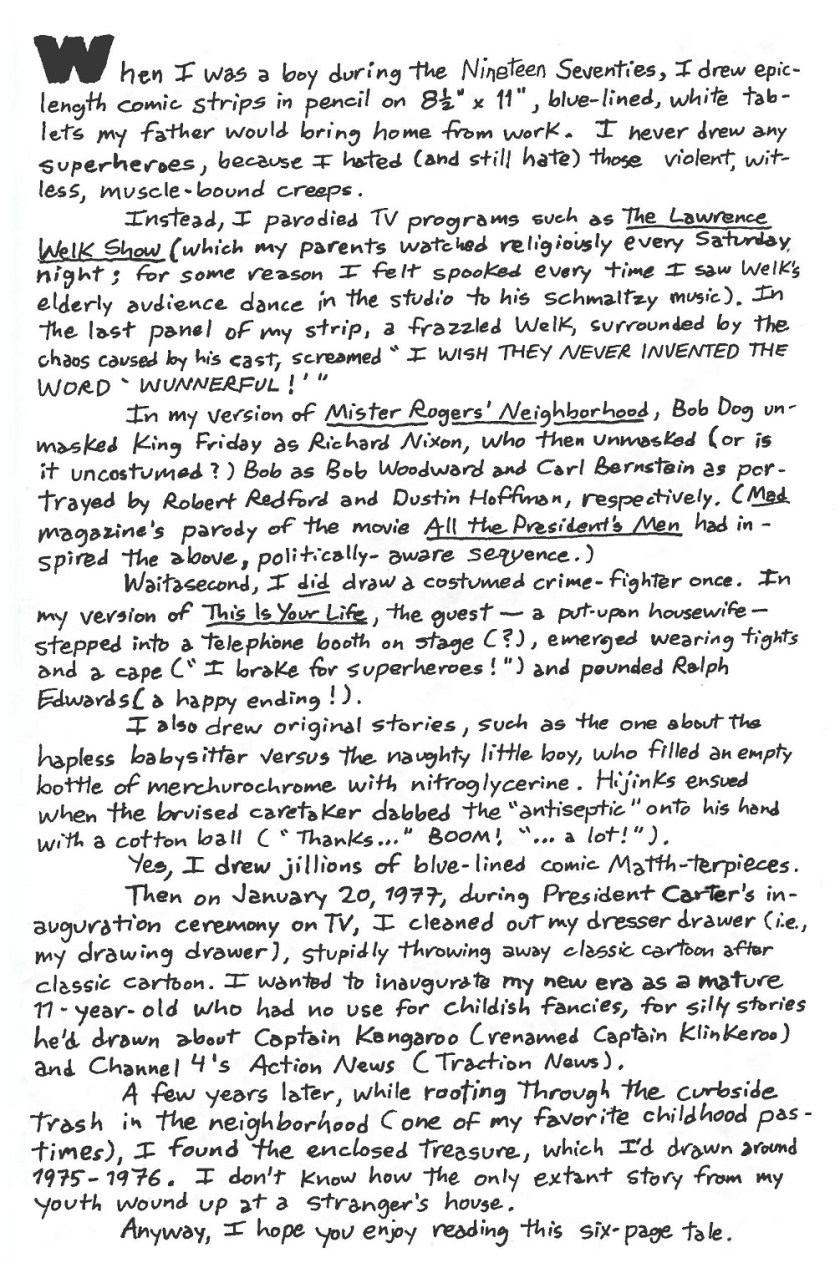 When I was a boy during the Nineteen Seventies, I drew epic-
length comic strips in pencil on 8½" x 11", blue-lined, white tab-
lets my father would bring home from work. I never drew any
superheroes, because I hated (and still hate) those violent, wit-
less, muscle-bound creeps.
Instead, I parodied TV programs such as The Lawrence
Welk Show (which my parents watched religiously every Saturday
night; for some reason I felt spooked every time I saw Welk's
elderly audience dance in the studio to his schmaltzy music). In
the last panel of my strip, a frazzled Welk, surrounded by the
chaos caused by his cast, screamed "I WISH THEY NEVER INVENTED THE
WORD 'WUNNERFUL!'"
In my version of Mister Rogers' Neighborhood, Bob Dog un-
masked King Friday as Richard Nixon, who then unmasked (or is
it uncostumed?) Bob as Bob Woodward and Carl Bernstein as por-
trayed by Robert Redford and Dustin Hoffman, respectively. (Mad
magazine's parody of the movie All the President's Men had in-
spired the above, politically-aware sequence.)
Waitasecond, I did draw a costumed crime-fighter once. In
my version of This Is Your Life, the guest — a put-upon housewife —
stepped into a telephone booth on stage (?), emerged wearing tights
and a cape ("I brake for superheroes!") and pounded Ralph
Edwards (a happy ending!).
I also drew original stories, such as the one about the
hapless babysitter versus the naughty little boy, who filled an empty
bottle of merchurochrome with nitroglycerine. Hijinks ensued
when the bruised caretaker dabbed the "antiseptic" onto his hand
with a cotton ball ("Thanks..." BOOM! "...a lot!").
Yes, I drew jillions of blue-lined comic Matth-terpieces.
Then on January 20, 1977, during President Carter's in-
auguration ceremony on TV, I cleaned out my dresser drawer (i.e.,
my drawing drawer), stupidly throwing away classic cartoon after
classic cartoon. I wanted to inaugurate my new era as a mature
11-year-old who had no use for childish fancies, for silly stories
he'd drawn about Captain Kangaroo (renamed Captain Klinkeroo)
and Channel 4's Action News (Traction News).
A few years later, while rooting through the curbside
trash in the neighborhood (one of my favorite childhood pas-
times), I found the enclosed treasure, which I'd drawn around
1975-1976. I don't know how the only extant story from my
youth wound up at a stranger's house.
Anyway, I hope you enjoy reading this six-page tale.